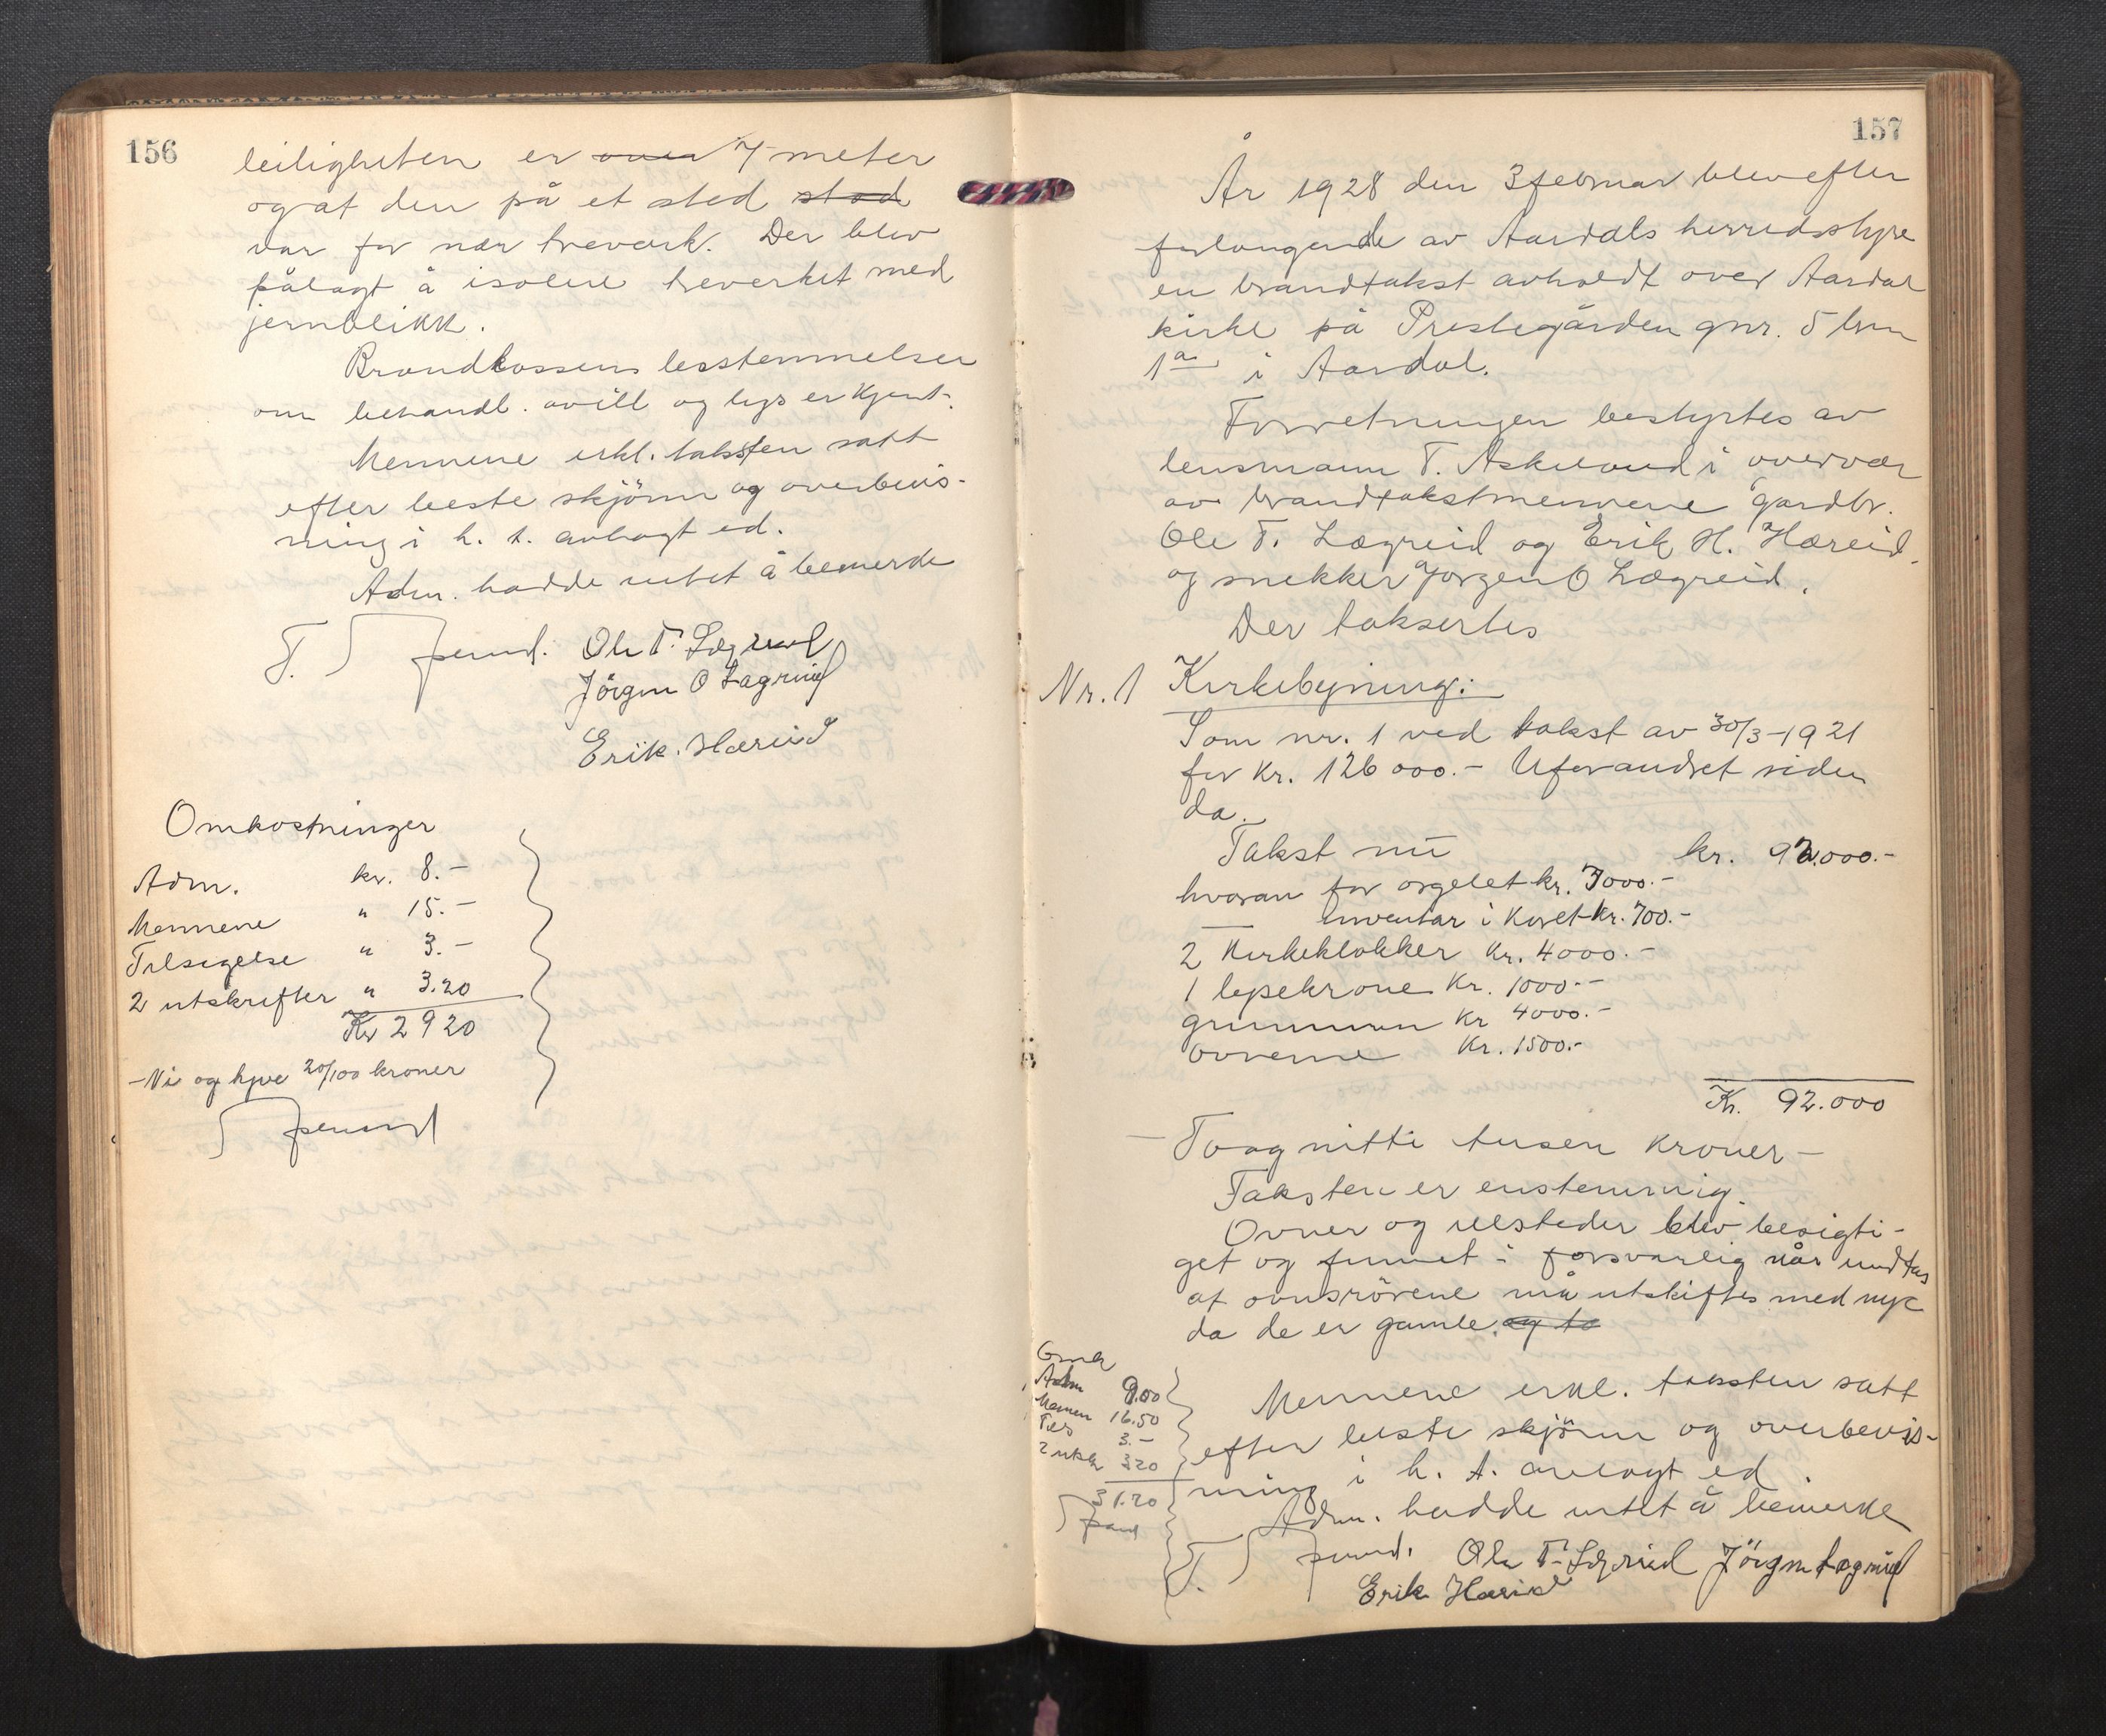 156
leiligheten er over 7 meter
og at den på et sted stod
var for nær treverk. Der blev
pålagt å isolere treverket med
jernblikk.
Brandkassens bestemmelser
om behandl. av ild og lys er kjent.
Mennene erkl. taksten satt
efter beste skjönn og overbevis-
ning i h. t. avlagt ed.
Adm. hadde intet å bemerke
T. Ole T. Lægreid
Jörgen O Lægreid
Erik. Hæreid
Omkostninger
Adm. kr. 8.-
Mennene " 15.-
Tilsigelse " 3.-
2 utskrifter " 3.20
Kr 29 20
- Ni og tyve 20/100 kroner
157
År 1928 den 3 februar blev efter
forlangende av Aardals herredsstyre
en brandtakst avholdt over Aardal
kirke på Prestegården gnr. 5 brn
1a i Aardal.
Forretningen bestyrtes av
lensmann T. Askelund i overvær
av brandtakstmennene gardbr.
Ole T. Lægreid og Erik H. Hæreid.
og snekker Jørgen O Lægreid.
Der taksertes
Nr. 1 Kirkebygning:
Som nr. 1 ved takst av 30/3-1921
for kr. 126 000.- Uforandret siden
da.
Takst nu kr. 92.000.-
hvorav for orgelet kr. 7000.-
— inventar i koret kr. 700.-
2 kirkeklokker kr. 4000.-
1 lysekrone kr. 1000.-
grunnmur kr 4000.-
ovnerne kr. 1500.-
Kr. 92.000
- To og nitti tusen kroner -
Taksten er enstemmig.
Ovner og ilsteder blev besigti-
get og funnet i forsvarlig når undtas
at ovnsrörene må utskiftes med nye
da de er gamle. og to
Omk
Adm 9.00
Mennen 16.50
Tils 3.-
2 utskr 3.20
31.70
Mennene erkl. taksten satt
efter beste skjönn og overbevis-
ning i h. t. avlagt ed.
Adm. hadde intet å bemerke
T. Ole T. Lægreid Jörgen Lægreid
Erik Hæreid